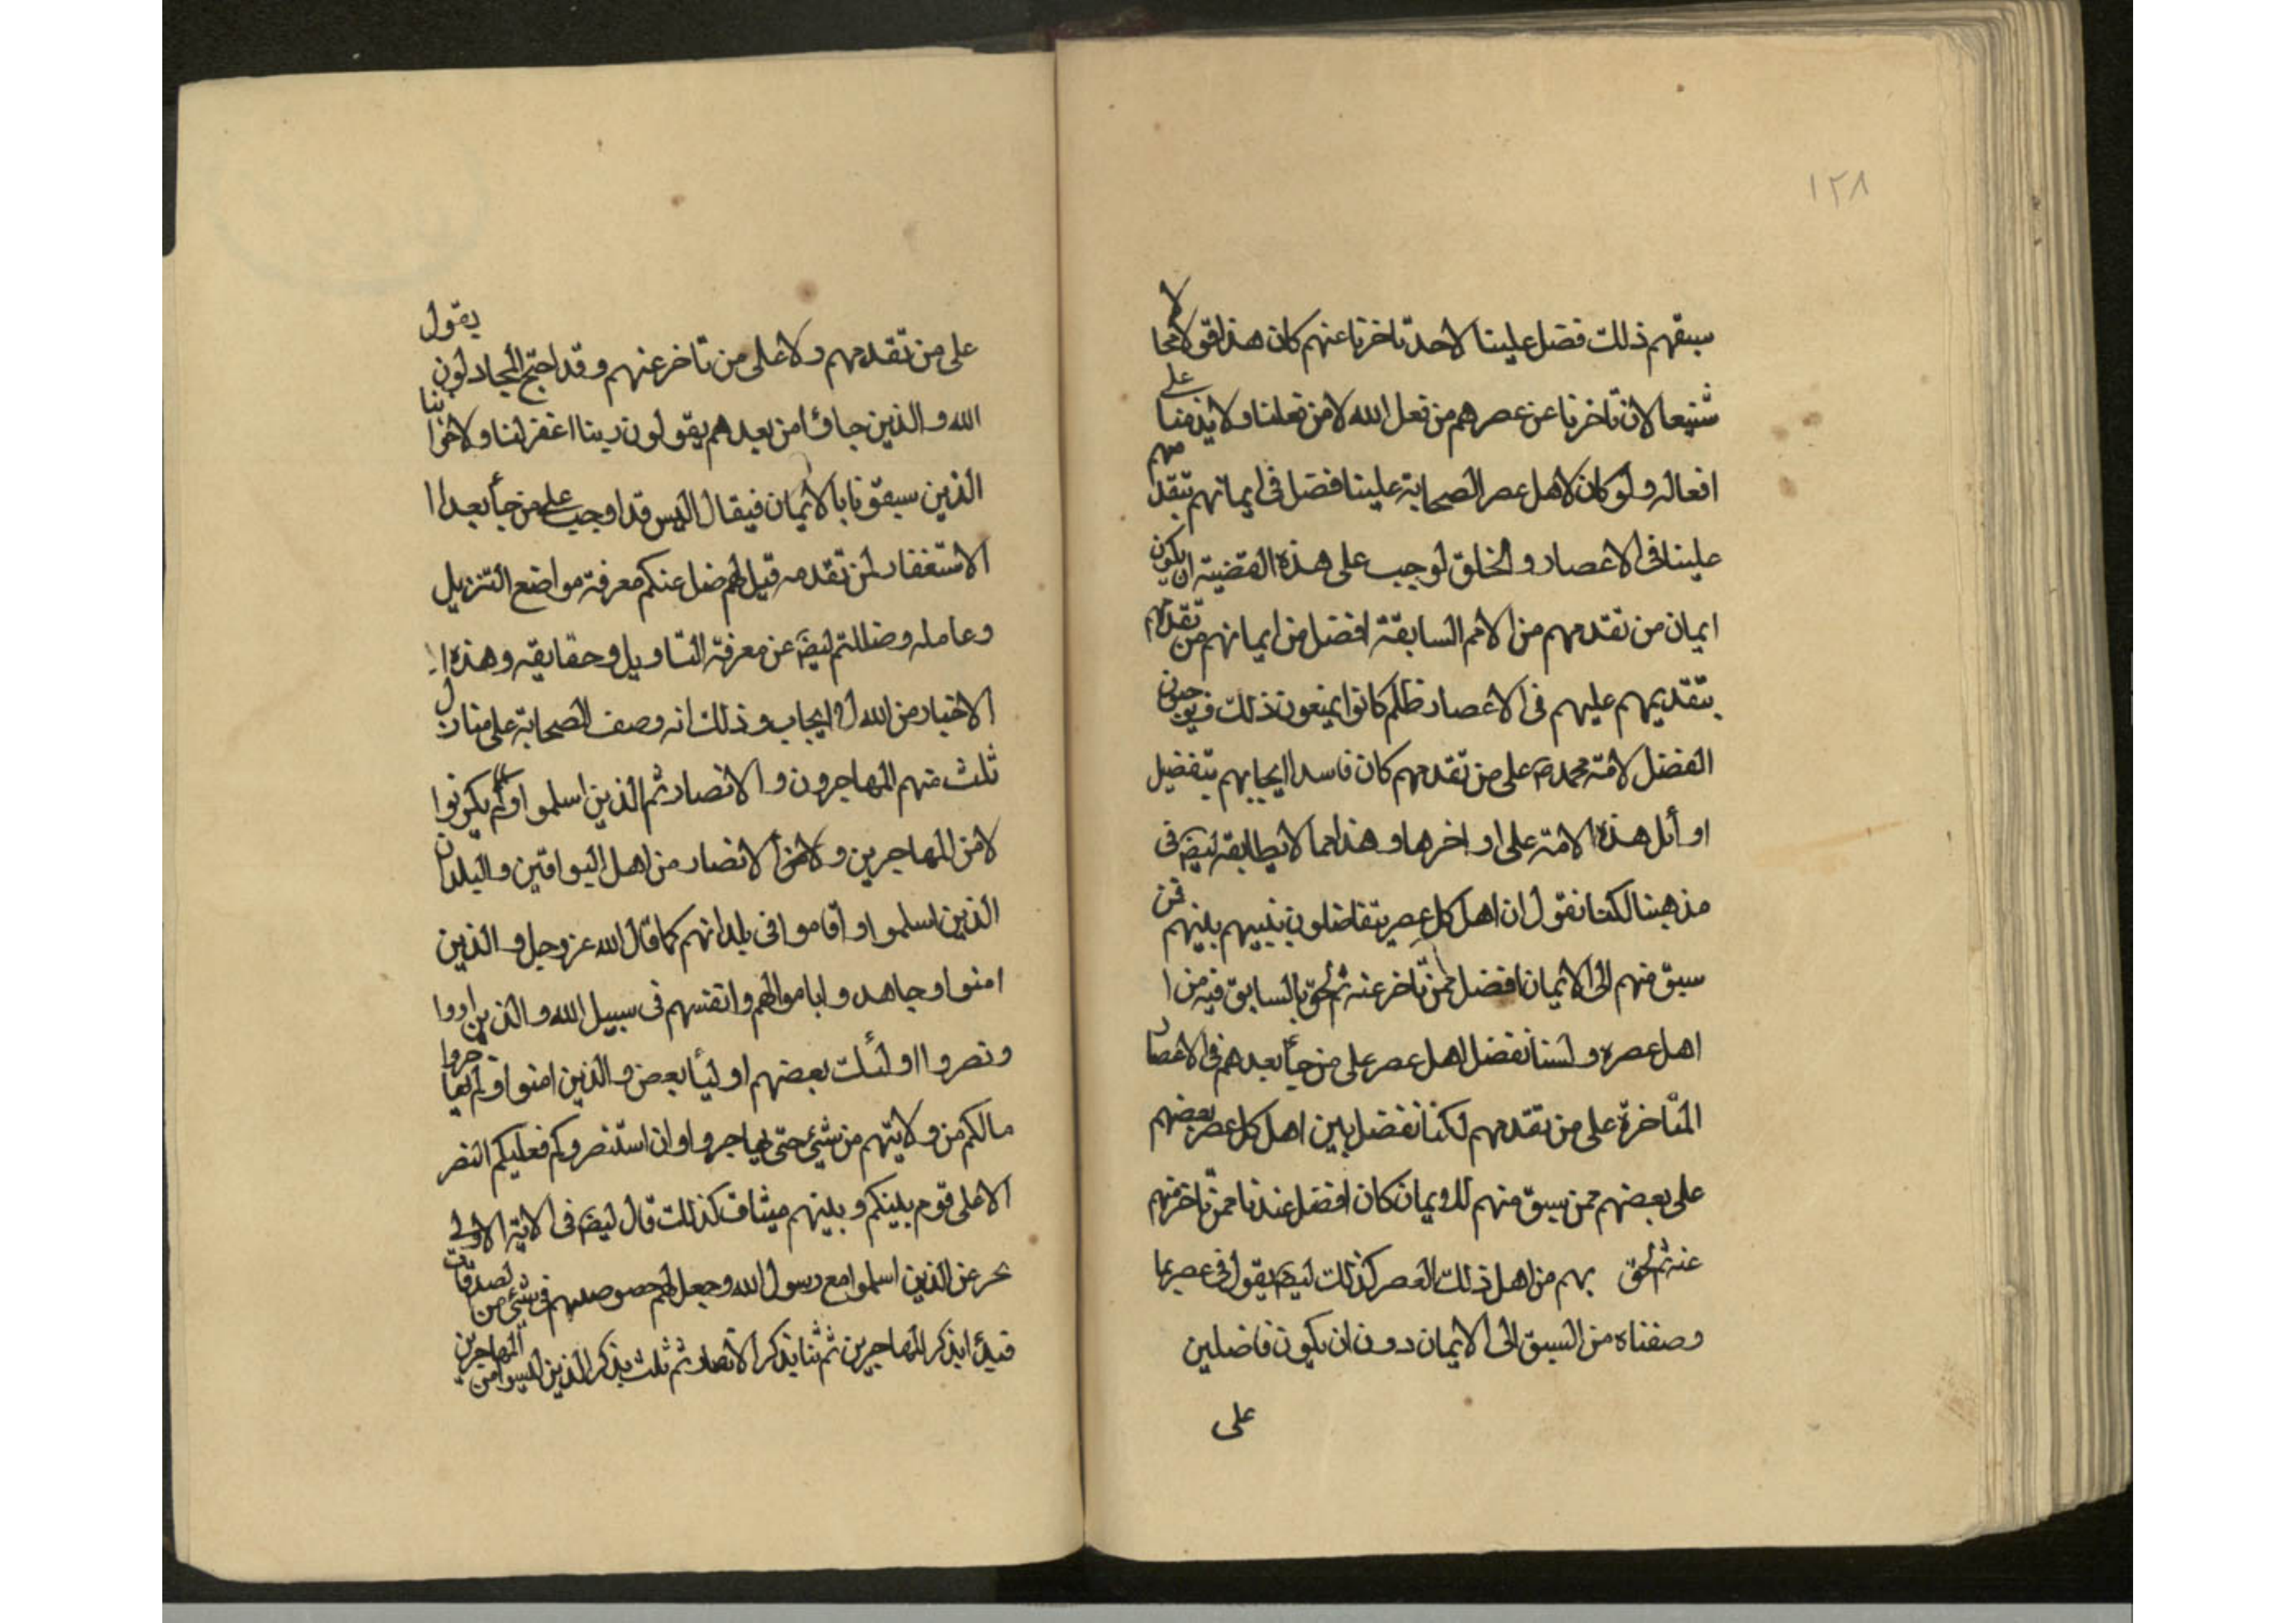 ١٢٨
سبقهم ذلك فضل علينا لاحد تاخرنا عنهم كان هذا قولا محالا
شنيعا لان تاخرنا عن عصرهم من فعل الله لا من فعلنا ولا يذمنا على
افعاله ولو كان لاهل عصر الصحابة علينا فضل فى ايمانهم بتقدمهم
علينا فى الاعصار والخلق لوجب على هذه القضية ان يكون
ايمان من تقدمهم من الامم السابقة افضل من ايمانهم من تقدمهم
بتقديمهم عليهم فى الاعصار فلم كانوا يمنعون ذلك ويوجبون
الفضل لامة محمد ص على من تقدمهم كان فاسدا ايجابهم بتفضيل
اوائل هذه الامة على اواخرها وهذا مما لا يطابقه ايض فى
مذهبنا لكنا نقول ان اهل كل عصر يتفاضلون بينهم فمن
سبق منهم الى الايمان افضل ممن تاخر عنه ثم لحق بالسابق فيه من ا
اهل عصره ولسنا نفضل اهل عصر على من جاء بعدهم فى الاعصار
المتاخرة على من تقدمهم لكنا نفضل بين اهل كل عصر بعضهم
على بعضهم ممن سبق منهم للايمان كان افضل عندنا ممن تاخر منهم
عنه ثم لحق بهم من اهل ذلك العصر كذلك ايض يقول فى عصر بما
وصفناه من السبق الى الايمان دون ان يكون فاضلين
على
على من تقدمهم ولا على من تاخر عنهم وقد احتج المجادلون يقول
الله والذين جاؤا من بعدهم يقولون ربنا اغفر لنا ولاخواننا
الذين سبقونا بالايمان فيقال اليس قد اوجب على من جاء بعد ا
الاستغفار لمن تقدمه قيل لهم ضل عنكم معرفة مواضع التنزيل
وعامله وضللتم ايض عن معرفة التاويل وحقايقه وهذه ا
الاخبار من الله ايجاب وذلك انه وصف الصحابة على منازل
ثلث منهم المهاجرون والانصار ثم الذين اسلموا ولم يكونوا
لا من المهاجرين ولا من الانصار من اهل البوادى والبلدان
الذين اسلموا واقاموا فى بلدانهم كما قال الله عز وجل والذين
امنوا وجاهدوا باموالهم وانفسهم فى سبيل الله والذين اووا
ونصروا اولئك بعضهم اولياء بعض والذين امنوا ولم يهاجروا
مالكم من ولايتهم من شئ حتى يهاجروا وان استنصروكم فعليكم النصر
الا على قوم بينكم وبينهم ميثاق كذلك قال ايض فى الاية الاولى
عن الذين اسلموا مع رسول الله وجعل لهم فى شئ من الصدقات
فبدأ بذكر المهاجرين ثم ثنا بذكر الانصار ثم ثلث بذكر الذين ليسوا من المهاجرين